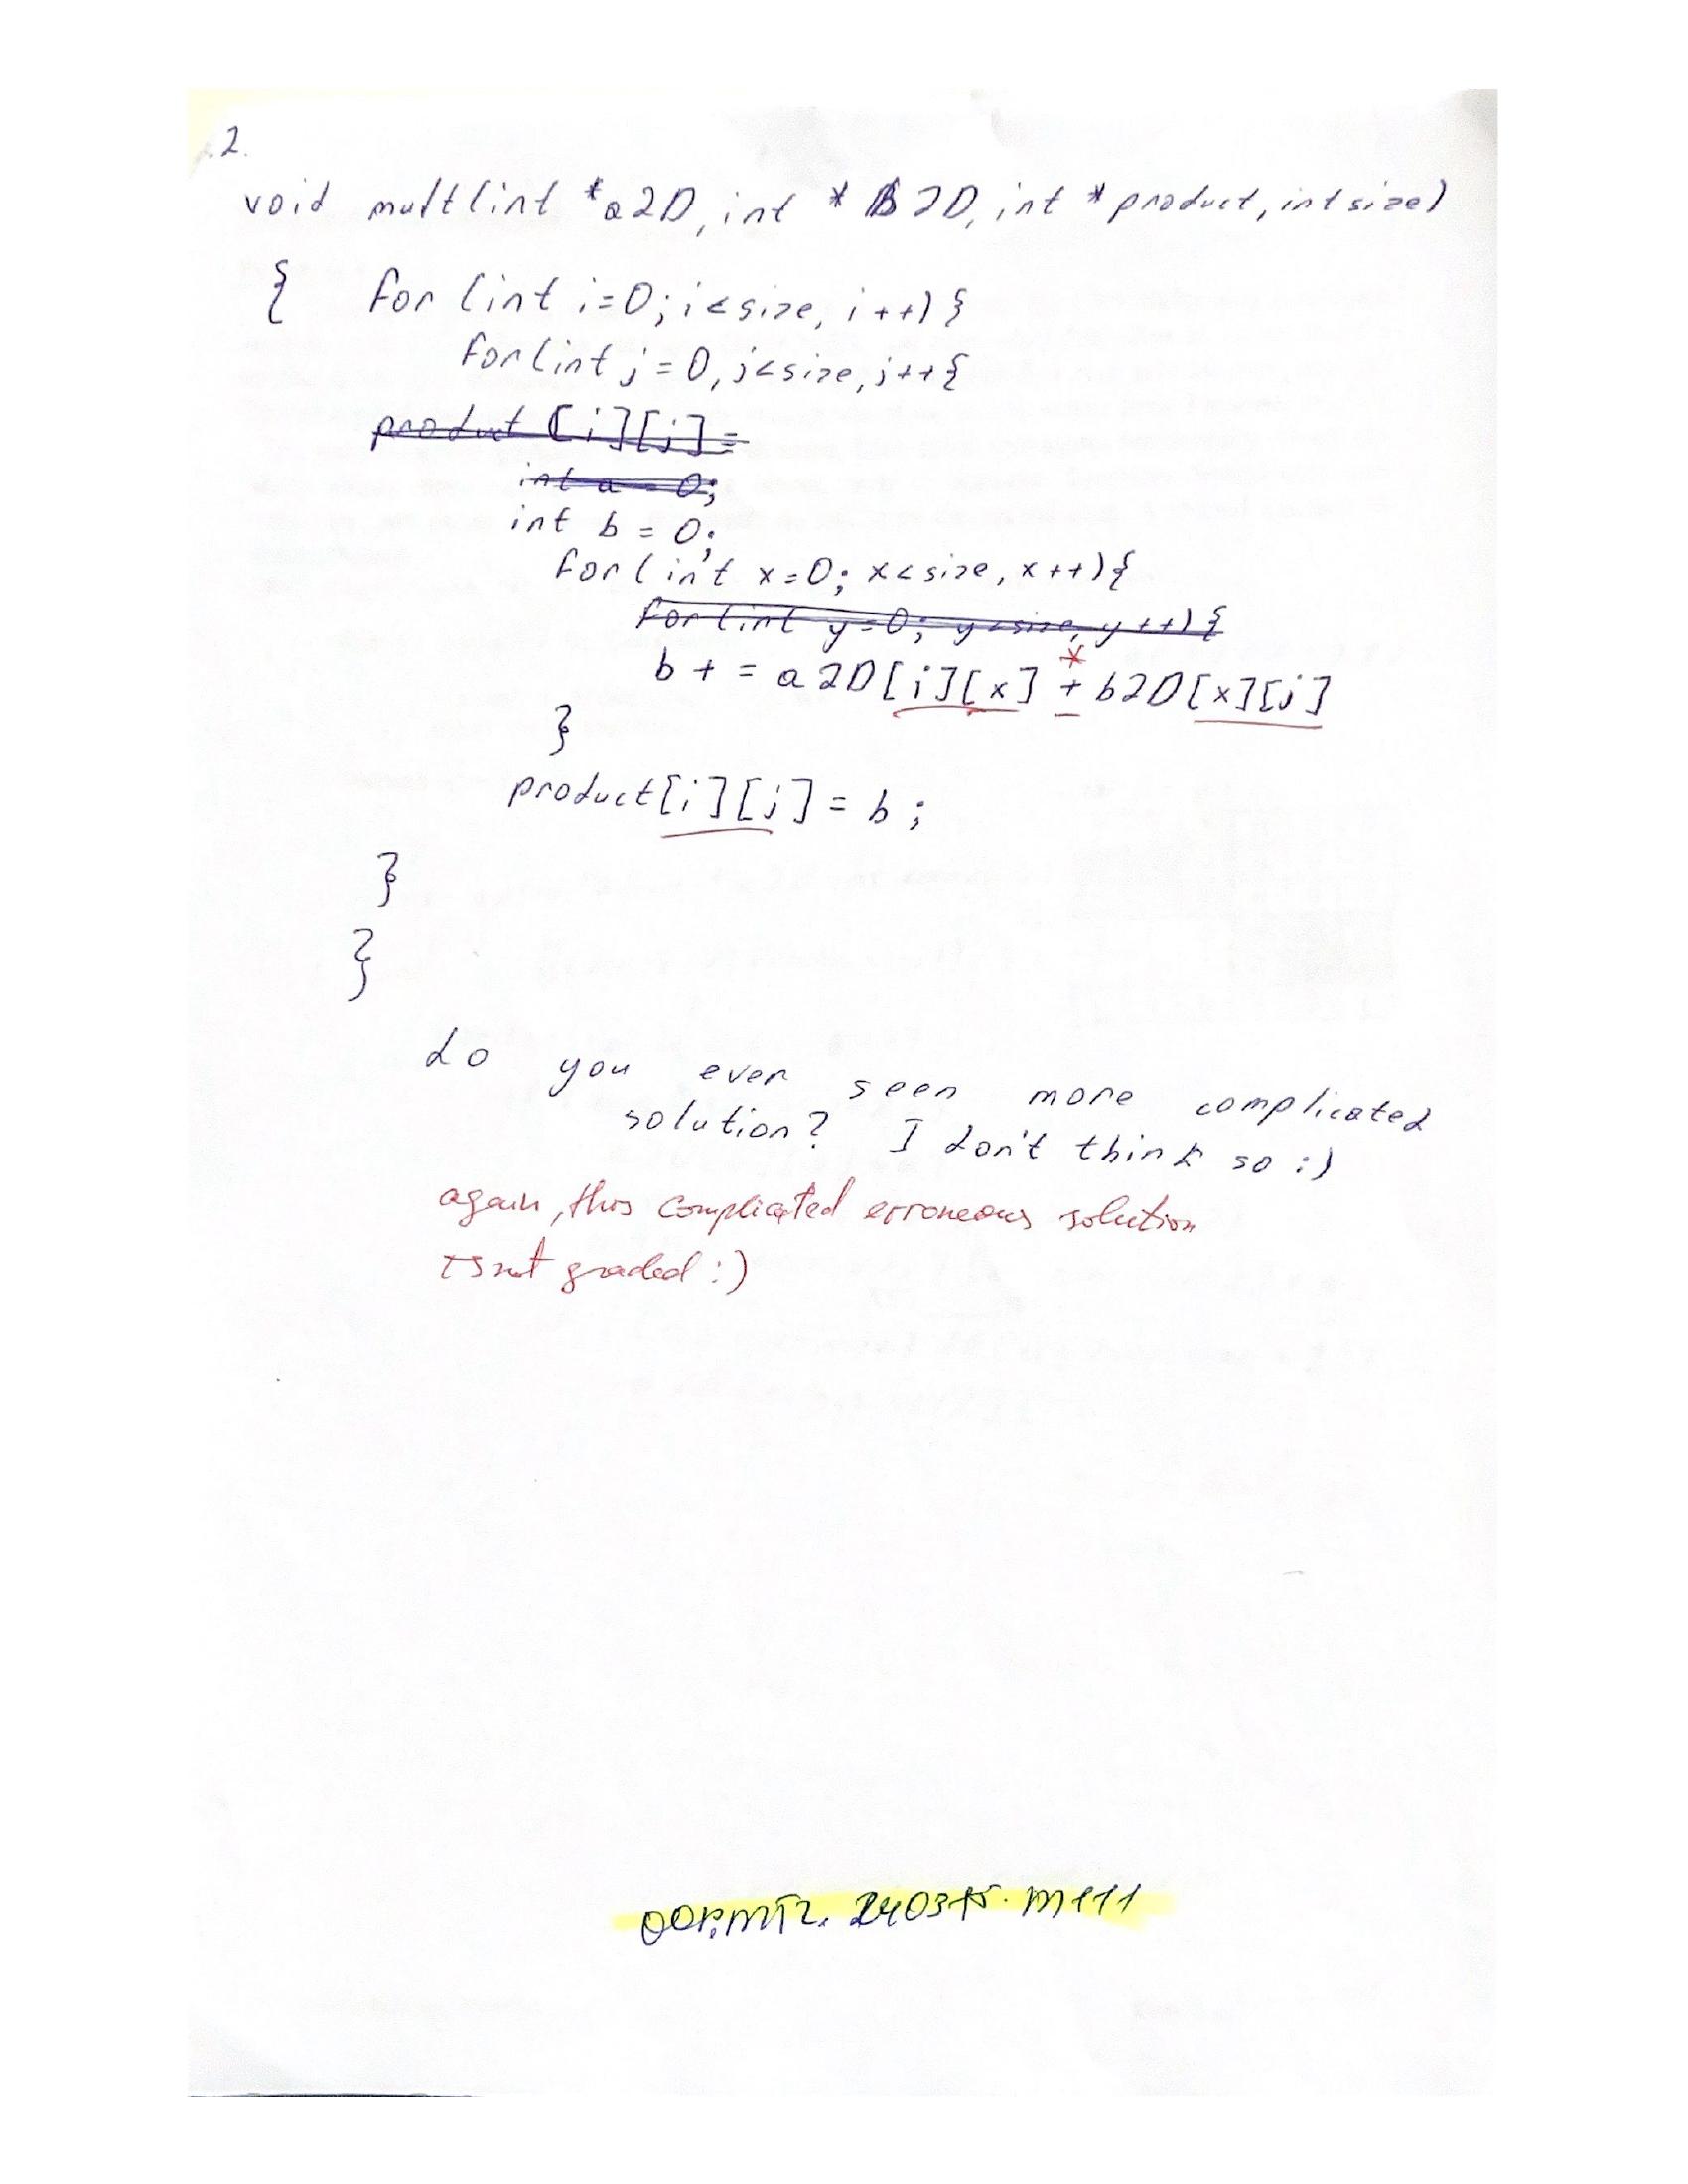 2.
void mult(int *a2D, int * B2D, int * product, int size)
{ for (int i=0; i<size, i++) {
for(int j=0, j<size, j++{
product [i][j]=
int a = 0;
int b = 0;
for (int x=0; x<size, x++){
for(int y=0; y<size, y++){
*
b += a2D[i][x] + b2D[x][j]
}
product[i][j] = b ;
}
}
do you ever seen more complicated
solution? I don't think so :)
again, this complicated erroneous solution
isnt graded :)